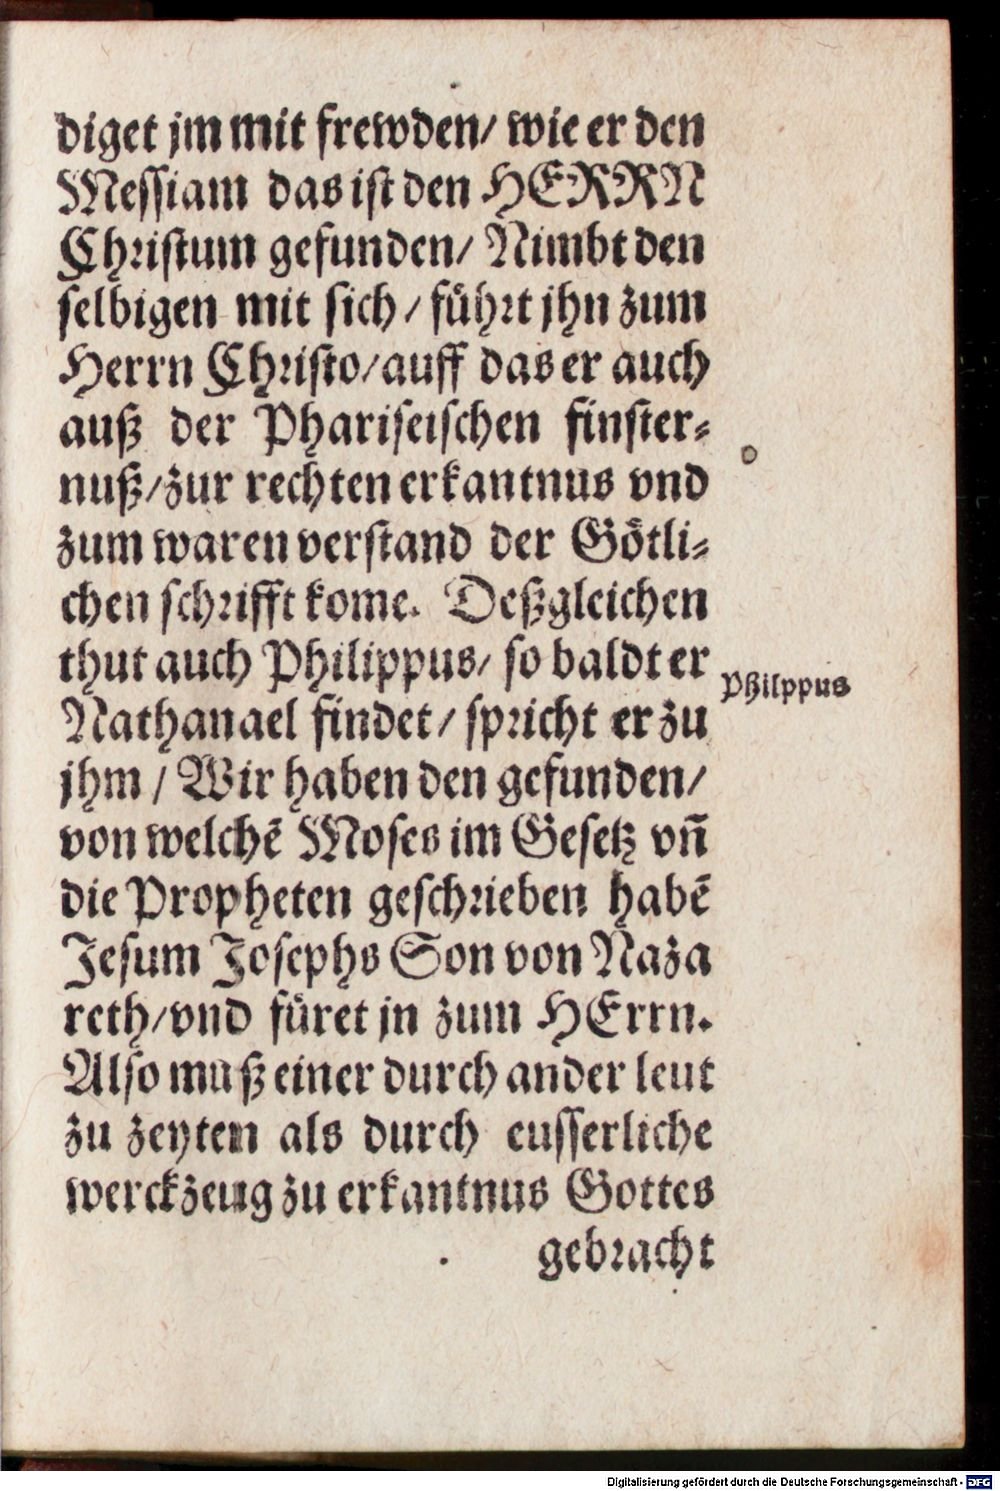 diget jm mit frewden/ wie er den
Messiam das ist den HERRN
Christum gefunden/ Nimbt den
selbigen mit sich/ führt jhn zum
Herrn Christo/auff das er auch
auß der Phariseischen finster⸗
nuß/zur rechten erkantnus vnd
zum waren verstand der Götli⸗
chen schrifft kome. Deßgleichen
thut auch Philippus/ so baldt er
Philppus
Nathanael findet/ spricht er zu
jhm / Wir haben den gefunden/
von welchē Moses im Gesetz vñ
die Propheten geschrieben habē
Jesum Josephs Son von Naza
reth/vnd füret jn zum HErrn.
Also muß einer durch ander leut
zu zeyten als durch eusserliche
werckzeug zu erkantnus Gottes
gebracht
Digitalisierung gefördert durch die Deutsche Forschungsgemeinschaft - DFG